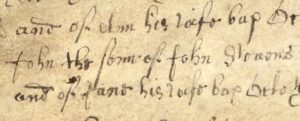 and of Ann his wife bap Oc
John the sonn of John Stevens
and of Jane his wife bap Octo